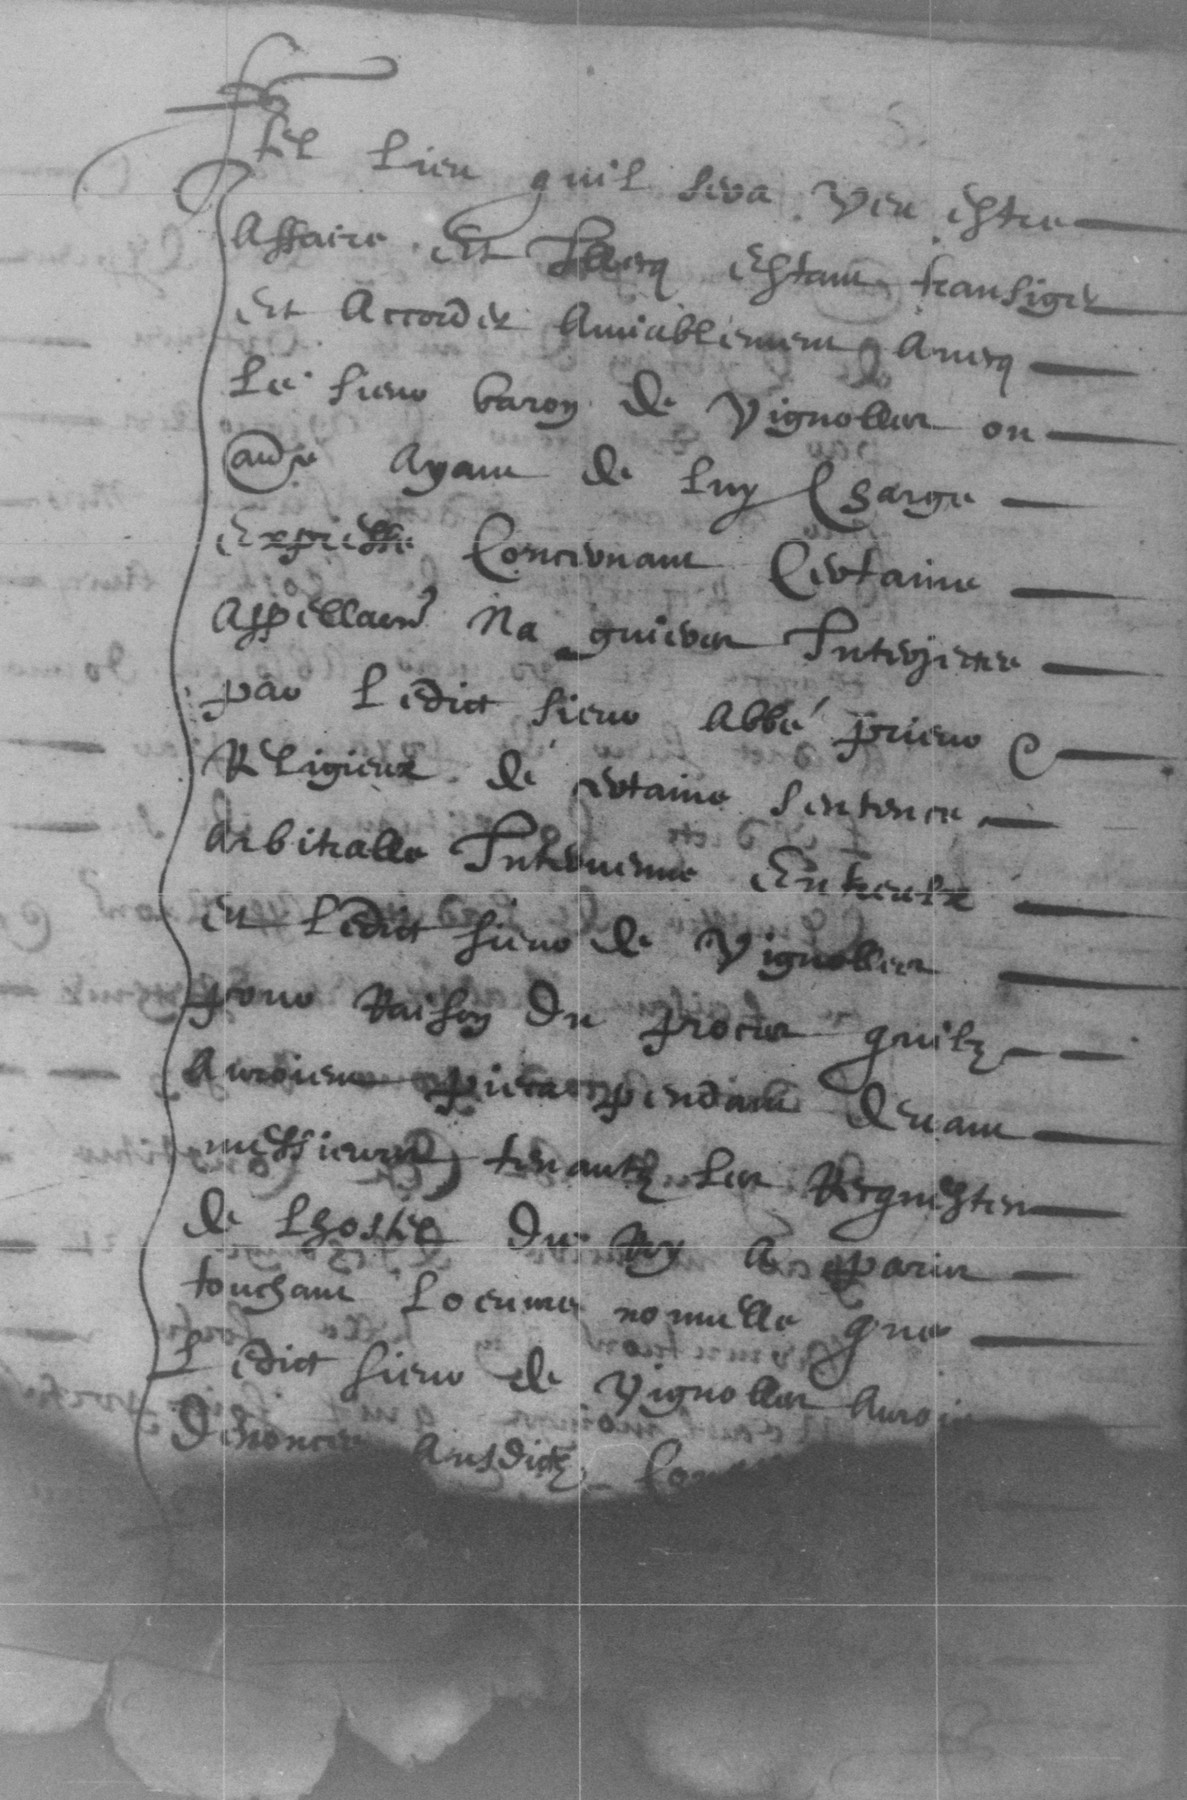 tel lieu quil sera veu estre
Affaire Et Illecq Estant transiger
Et Accorder Amiablement Avecq
Le sieur baron de Vignolles ou
aultre Ayant de luy Charge
Expresse Concernant Certaine
Appella͠on Na guieres Interjectée
par Ledict sieur Abbé prieur &
Religieux de certaine sentence
Arbitralle Intervenue Entreulx
Et Ledict sieur de Vignolles
pour Raison du proces quilz
Auroient pendant devant
messieurs tenantz les Requestes
de Lhostel du Roy A paris
touchant nouvelle que
Ledict sieur de Vignolles Auroit
Denoncer Ausdictz